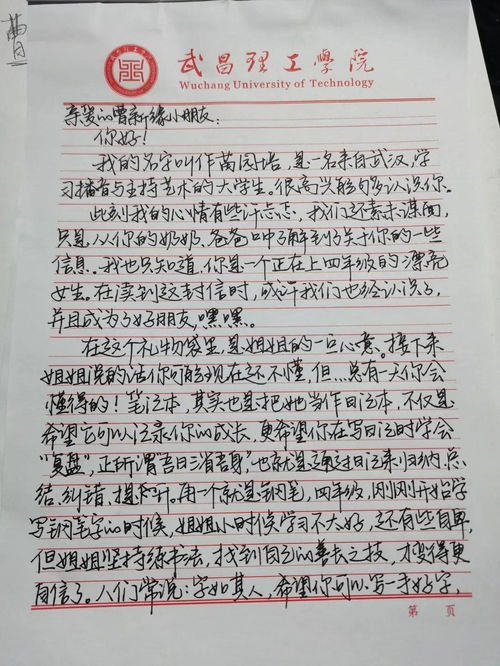 武昌理工学院
Wuchang University of Technology
亲爱的曾新缘小朋友：
你好！
我的名字叫作苗园培，是一名来自武汉，学
习播音与主持艺术的大学生，很高兴能够认识你。
此刻我的心情有些许忐忑，我们还素未谋面，
只是从你的奶奶、爸爸口中了解到关于你的一些
信息。我也只知道，你是一个正在上四年级的漂亮
女生。在读到这封信时，或许我们也已经认识了，
并且成为了好朋友，嘿嘿。
在这个礼物袋里，是姐姐的一点心意。接下来
姐姐说的话你可能现在还不懂，但...总有一天你会
懂得的！笔记本，其实也是把她当作日记本，不仅是
希望它可以记录你的成长，更希望你在写日记时学会
“复盘”，正所谓“吾日三省吾身”，也就是通过日记来归纳、总
结、纠错、提升。另一个就是钢笔，四年级，刚刚开始学
写钢笔字的时候，姐姐小时候学习不大好，还有些自卑，
但姐姐坚持练书法，找到自己的善长之技，才变得更
自信了。人们常说：字如其人，希望你可以写一手好字，
第 页